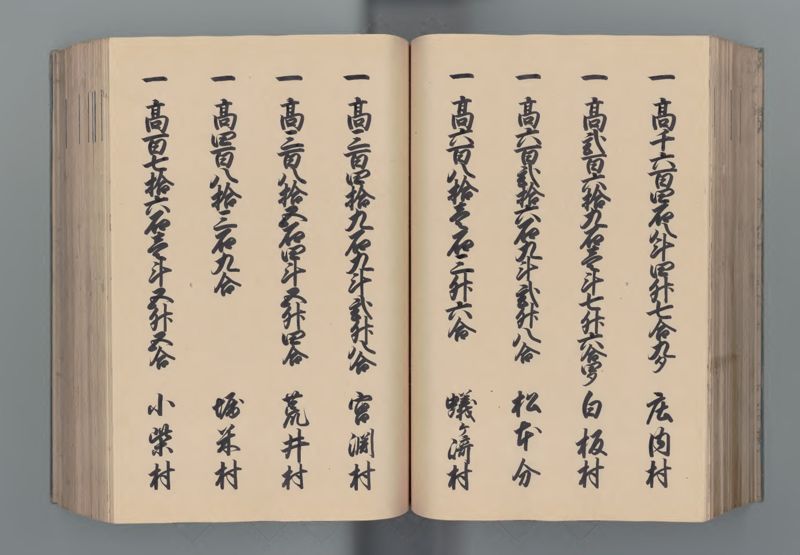 一 高千六百四石八斗四升七合九夕 庄内村
一 高弐百六拾九石壱斗七升六合四夕 白板村
一 高六百弐拾六石九斗弐升八合 松本分
一 高六百八拾壱石三升六合 蟻ヶ崎村
一 高三百四拾九石九斗弐升八合 宮渕村
一 高三百八拾五石四斗五升四合 荒井村
一 高四百八拾三石九合 堀米村
一 高百七拾六石壱斗五升五合 小柴村